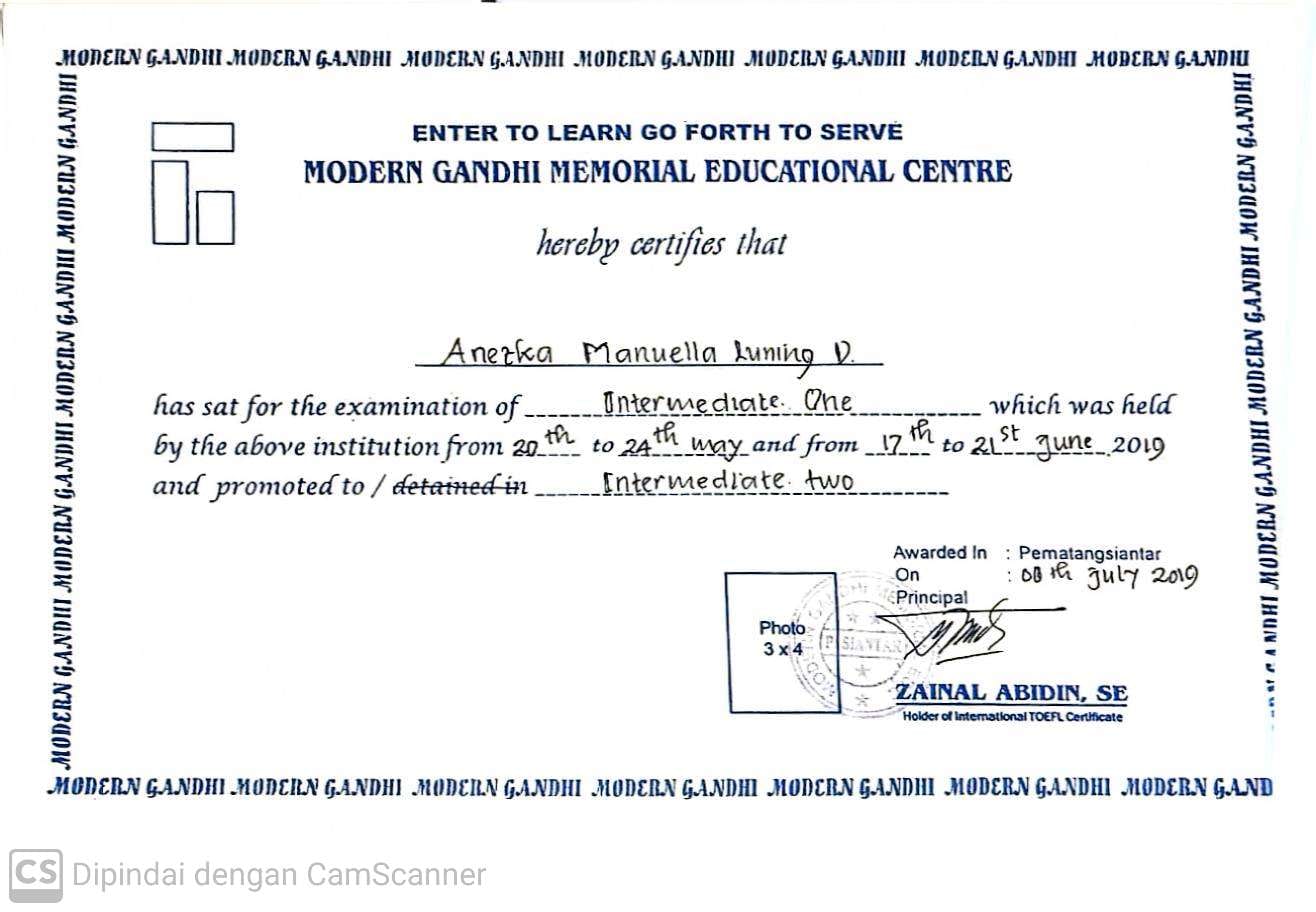 MODERN GANDHI MODERN GANDHI MODERN GANDHI MODERN GANDHI MODERN GANDHI MODERN GANDHI MODERN GANDHI
MODERN GANDHI MODERN GANDHI MODERN GANDHI MODERN GANDHI
ENTER TO LEARN GO FORTH TO SERVE
MODERN GANDHI MEMORIAL EDUCATIONAL CENTRE
hereby certifies that
Anezka Manuella Luning D.
has sat for the examination of Intermediate One which was held
by the above institution from 20th to 24th may and from 17th to 21st june 2019
and promoted to / detained in Intermediate two
Awarded In : Pematangsiantar
On : 08th july 2019
Principal
Photo
3 x 4
P. SIANTAR
ZAINAL ABIDIN, SE
Holder of International TOEFL Certificate
MODERN GANDHI MODERN GANDHI MODERN GANDHI MODERN GANDHI
MODERN GANDHI MODERN GANDHI MODERN GANDHI MODERN GANDHI MODERN GANDHI MODERN GANDHI MODERN GAND
CS Dipindai dengan CamScanner